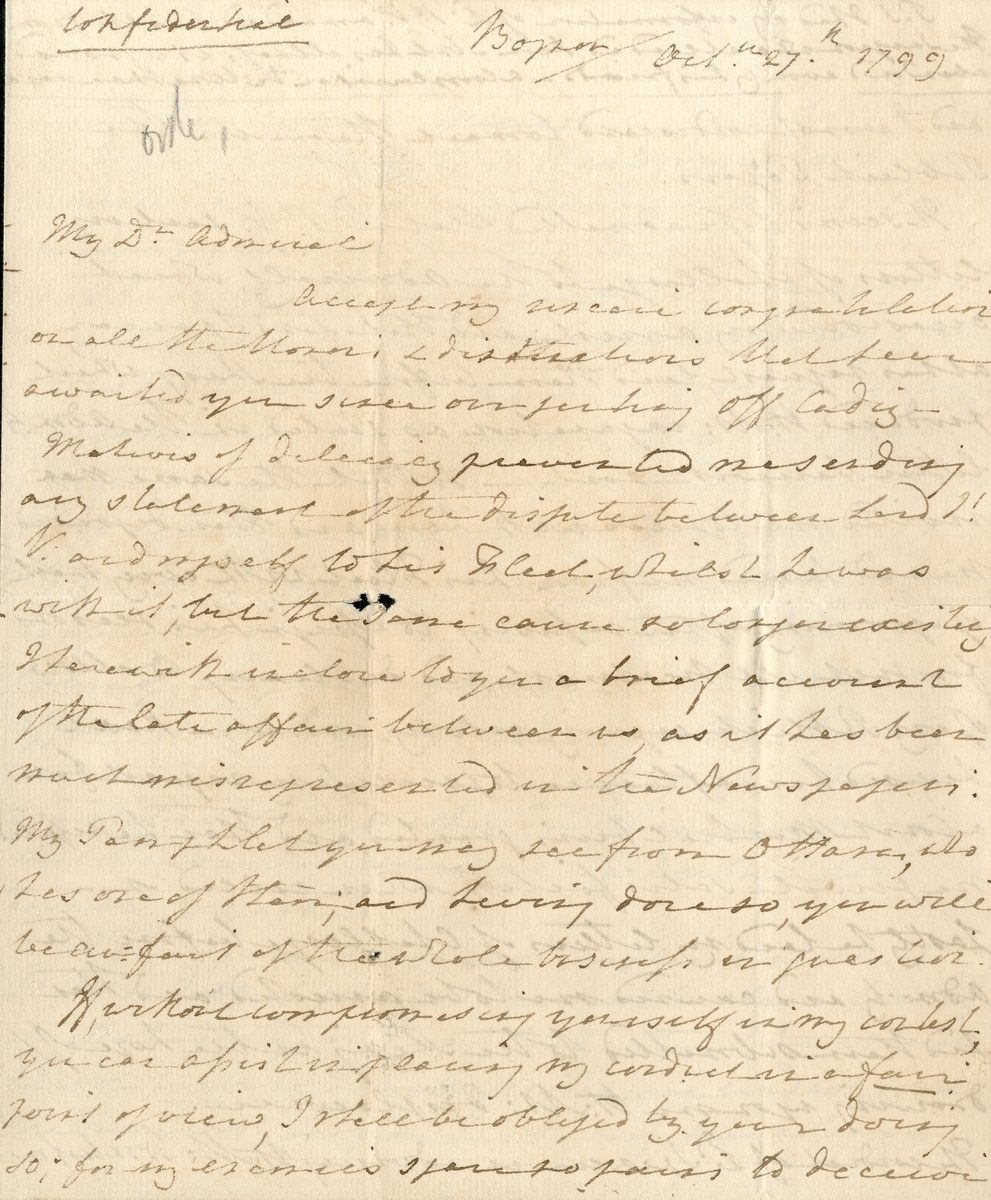 Confidential
Octr. 27.th 1799
My Dr. Admiral
Accept my sincere congratulations
on all the Honors & distinctions that have
awaited you since our parting off Cadiz
Motives of delicacy prevented me sending
any statement of the dispute between Lord St.
V. and myself to his Fleet, whilst he was
with it, but the same cause no longer existing
I herewith inclose to you a brief account
of the late affair between us, as it has been
much misrepresented in the Newspapers.
My Pamphlet you may see from who
has one of them, and having done so, you will
be au-fait of the whole business in question.
If, without compromising yourself in my contest,
you can assist in placing my conduct in a fair
point of view, I shall be obliged by your doing
so; for my enemies spare no pains to deceive